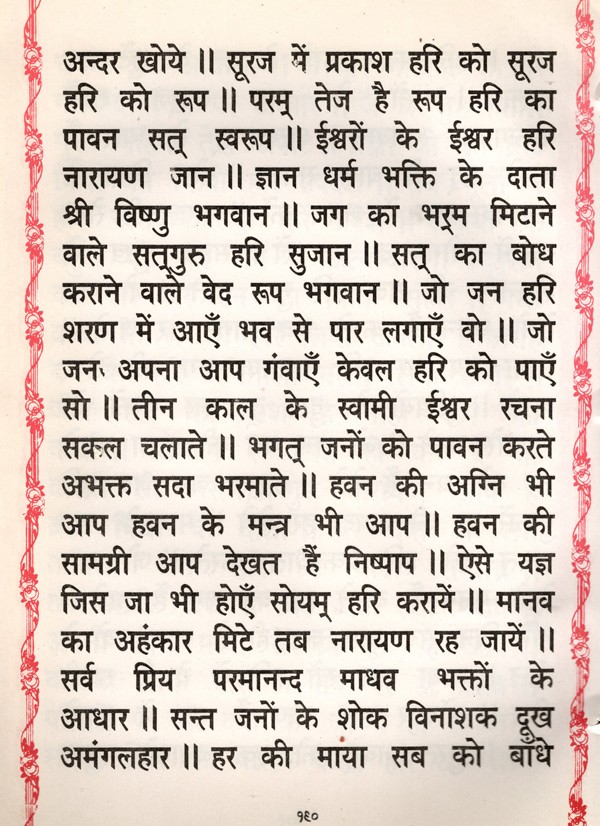 अन्दर खोये ॥ सूरज में प्रकाश हरि को सूरज
हरि को रूप ॥ परम् तेज है रूप हरि का
पावन सत् स्वरूप ॥ ईश्वरों के ईश्वर हरि
नारायण जान ॥ ज्ञान धर्म भक्ति के दाता
श्री विष्णु भगवान ॥ जग का भर्म मिटाने
वाले सत्गुरु हरि सुजान ॥ सत् का बोध
कराने वाले वेद रूप भगवान ॥ जो जन हरि
शरण में आएँ भव से पार लगाएँ वो ॥ जो
जन अपना आप गंवाएँ केवल हरि को पाएँ
सो ॥ तीन काल के स्वामी ईश्वर रचना
सकल चलाते ॥ भगत् जनों को पावन करते
अभक्त सदा भरमाते ॥ हवन की अग्नि भी
आप हवन के मन्त्र भी आप ॥ हवन की
सामग्री आप देखत हैं निष्पाप ॥ ऐसे यज्ञ
जिस जा भी होएँ सोयम् हरि करायें ॥ मानव
का अहंकार मिटे तब नारायण रह जायें ॥
सर्व प्रिय परमानन्द माधव भक्तों के
आधार ॥ सन्त जनों के शोक विनाशक दूख
अमंगलहार ॥ हर की माया सब को बाँधे
१९०